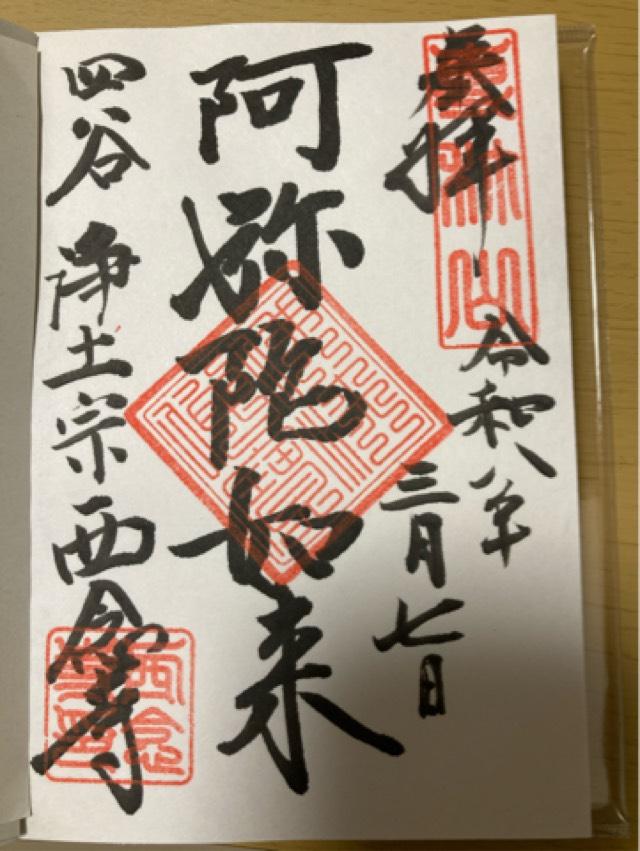 奉拝
令和八年
三月七日
阿弥陀如来
四谷 浄土宗 西念寺
西念